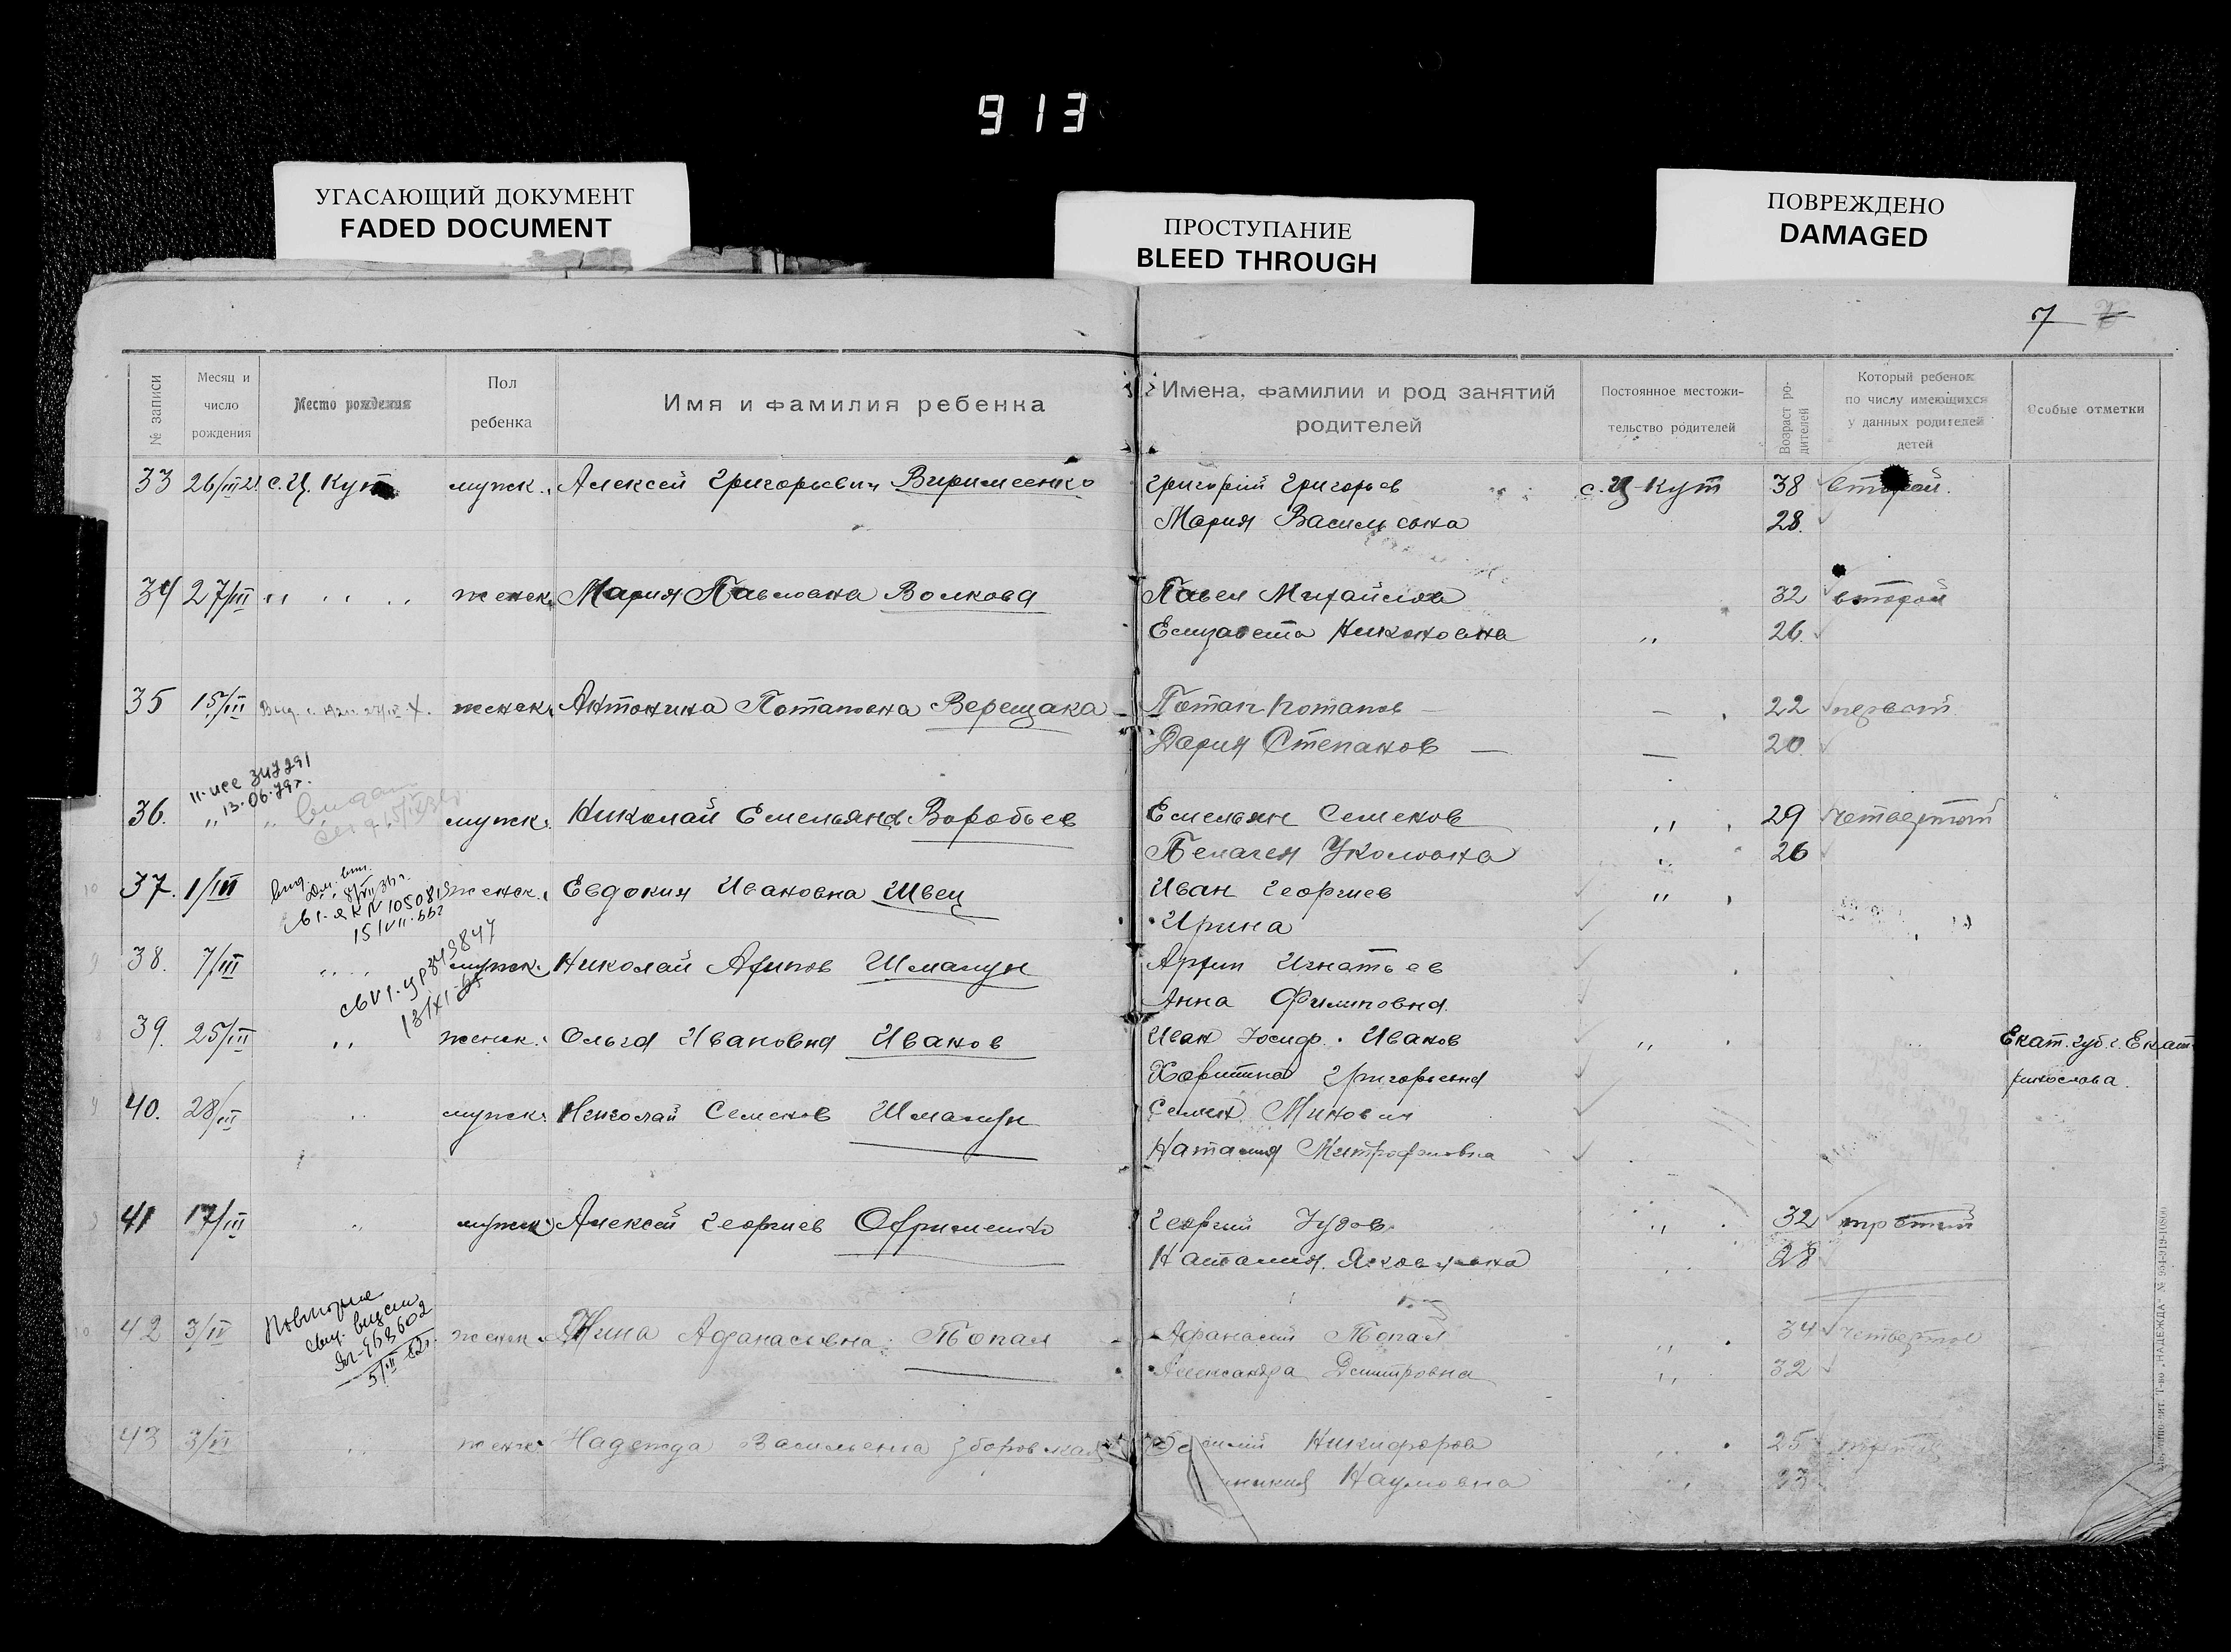 913
УГАСАЮЩИЙ ДОКУМЕНТ
FADED DOCUMENT
ПРОСТУПАНИЕ
BLEED THROUGH
ПОВРЕЖДЕНО
DAMAGED
7
№ записи
Месяц и число рождения
Место рождения
Пол ребенка
Имя и фамилия ребенка
Имена, фамилии и род занятий родителей
Постоянное местожи-тельство родителей
Возраст ро-дителей
Который ребенок по числу имеющихся у данных родителей детей
Особые отметки
33 26/III 21 с. Ц. Кут мужск. Алексей Григорьевич Григорий Григорьев с. Ц-Кут 38 второй.
Мария Васильевна 28.
34 27/III " " " женск. Мария Павловна Волкова Павел Михайлов 32 второй
Елизавета Никоновна " 26.
35 15/III женск. Антонина Потаповна Верещака Потап Потапов — — 22 первый
Дария Степанов — — 20
13.06.79г.
36. " " мужск. Николай Емельянов Воробьев Емельян Семенов " 29 четвертый
Пелагея " 26
37. 1/III женск. Евдокия Ивановна Швец Иван Георгиев "
105081
15/VII-66г
Ирина
38. 7/III " " мужск. Николай Архипов Шмалун Архип Игнатьев
Анна Филиповна
39. 25/III " женск. Ольга Ивановна Иванов Иван Иосиф. Иванов " Екат. губ. г. Екат-
Харитина Григорьевна ринослава.
40. 28/III " мужск. Николай Семенов Шмалун Семен Минович
Наталия Митрофановна
41 17/III " мужск. Алексей Георгиев Офрименко Георгий Иудов " 32 третий
Наталия Яковлевна " 28
Повторное
свид.
5/III 62г.
42 3/IV женск. Нина Афанасьевна Топал Афанасий Топал " 34 четвертое
Александра Дмитровна " 32
43 3/IV " женск. Надежда Васильевна Зборовская Никифоров " 25
Наумовна "